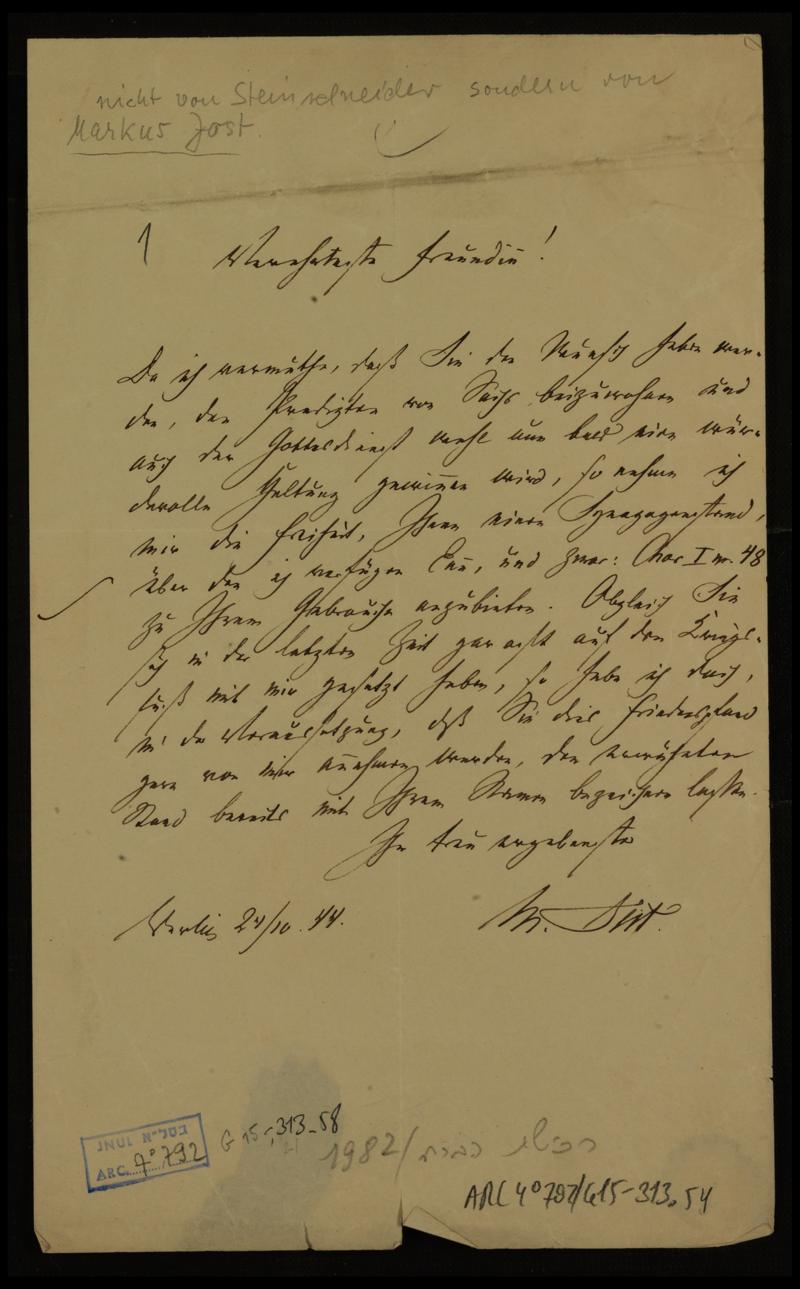 nicht von Steinschneider sondern von
Markus Jost.
1
Verehrteste Freundin!
Da ich vermuthe, daß Sie den Wunsch haben wer-
den, den Predigten von Sachs beizuwohnen und
auch der Gottesdienst wohl nun bald eine wür-
devolle Haltung gewinnen wird, so nehme ich
mir die Freiheit, Ihnen einen Synagogenstand,
über den ich verfügen kann, und zwar: Chor I nr. 48
zu Ihrem Gebrauche anzubieten. Obgleich Sie
sich in der letzten Zeit gar auf den Kriegs-
fuß mit mir gesetzt haben, so habe ich doch,
in der Voraussetzung, daß Sie dies Friedenspfand
gern von mir annehmen werden, den erwähnten
Stand bereits mit Ihrem Namen bezeichnen lassen.
Ihr treu ergebenster
Berlin 24/10. 44.
M.
ARC. 4° 792
G 15, 313-58
1982/
ARC 4° 792/G15-313.54